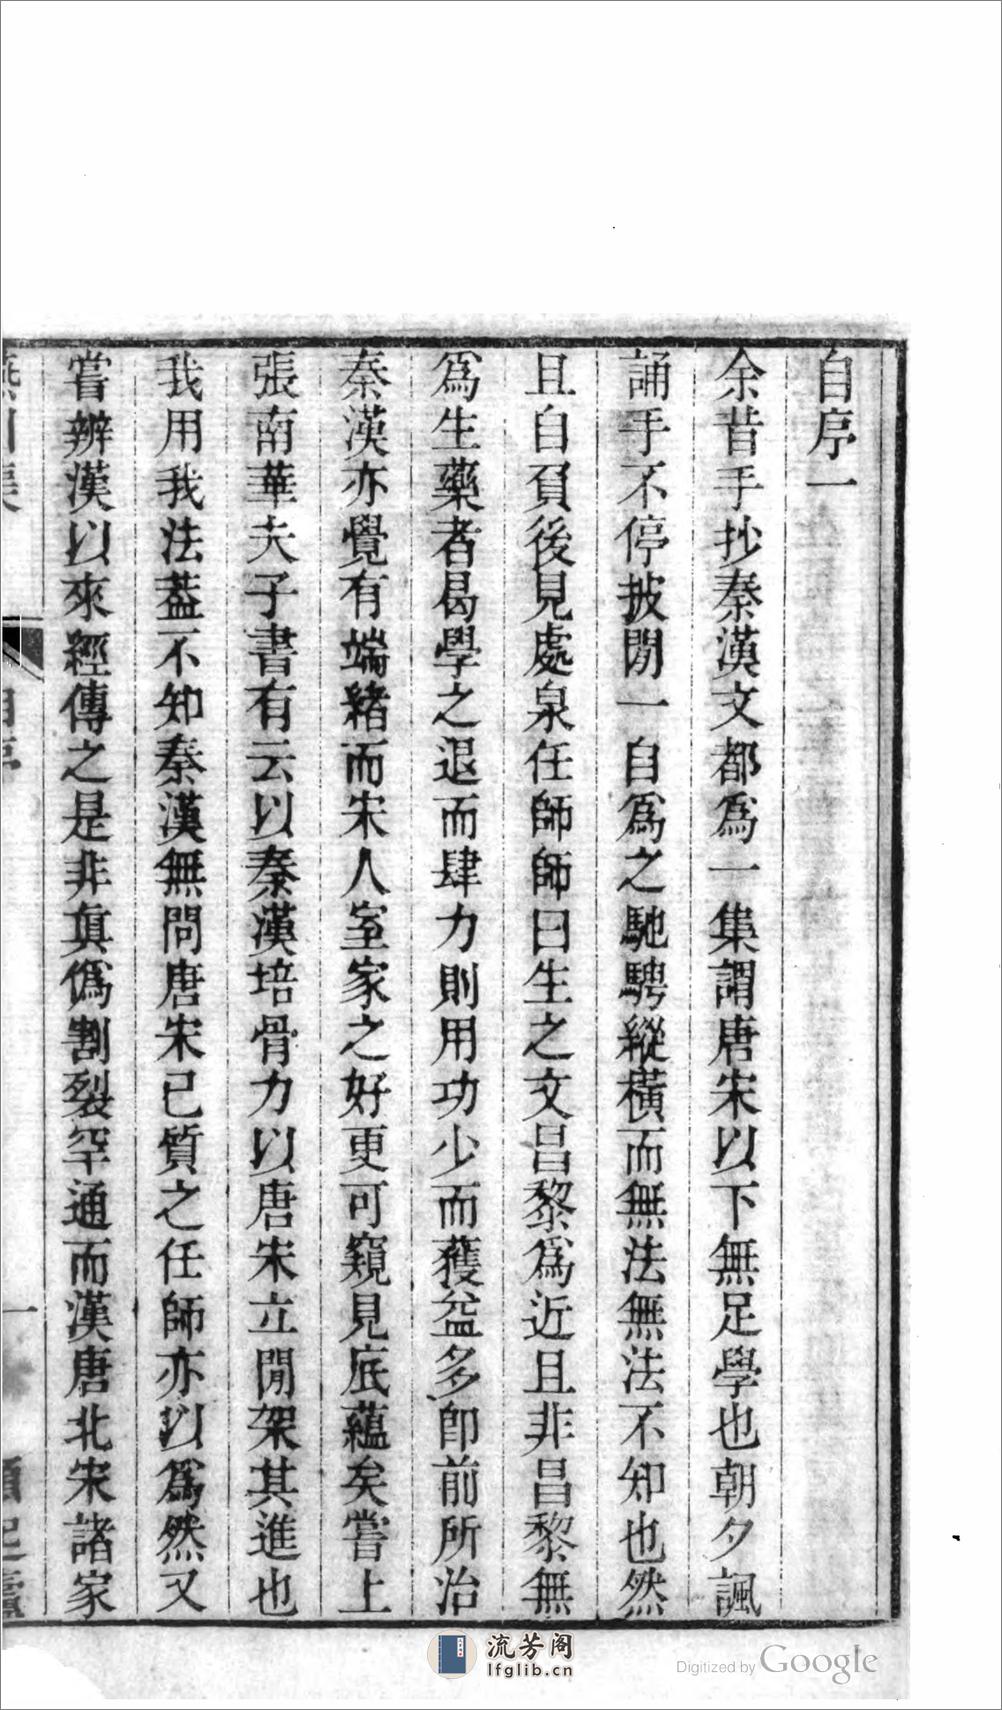 自序一
余昔手抄秦漢文都爲一集謂唐宋以下無足學也朝夕諷
誦手不停披閒一自爲之馳騁縱橫而無法無法不知也然
且自負後見處泉任師師曰生之文昌黎爲近且非昌黎無
爲生藥者曷學之退而肆力則用功少而獲益多卽前所治
秦漢亦覺有端緒而宋人室家之好更可窺見底蘊矣嘗上
張南華夫子書有云以秦漢培骨力以唐宋立閒架其進也
我用我法蓋不知秦漢無問唐宋已質之任師亦以爲然又
嘗辨漢以來經傳之是非眞僞割裂罕通而漢唐北宋諸家
自序
一
流芳阁
lfglib.cn
Digitized by Google